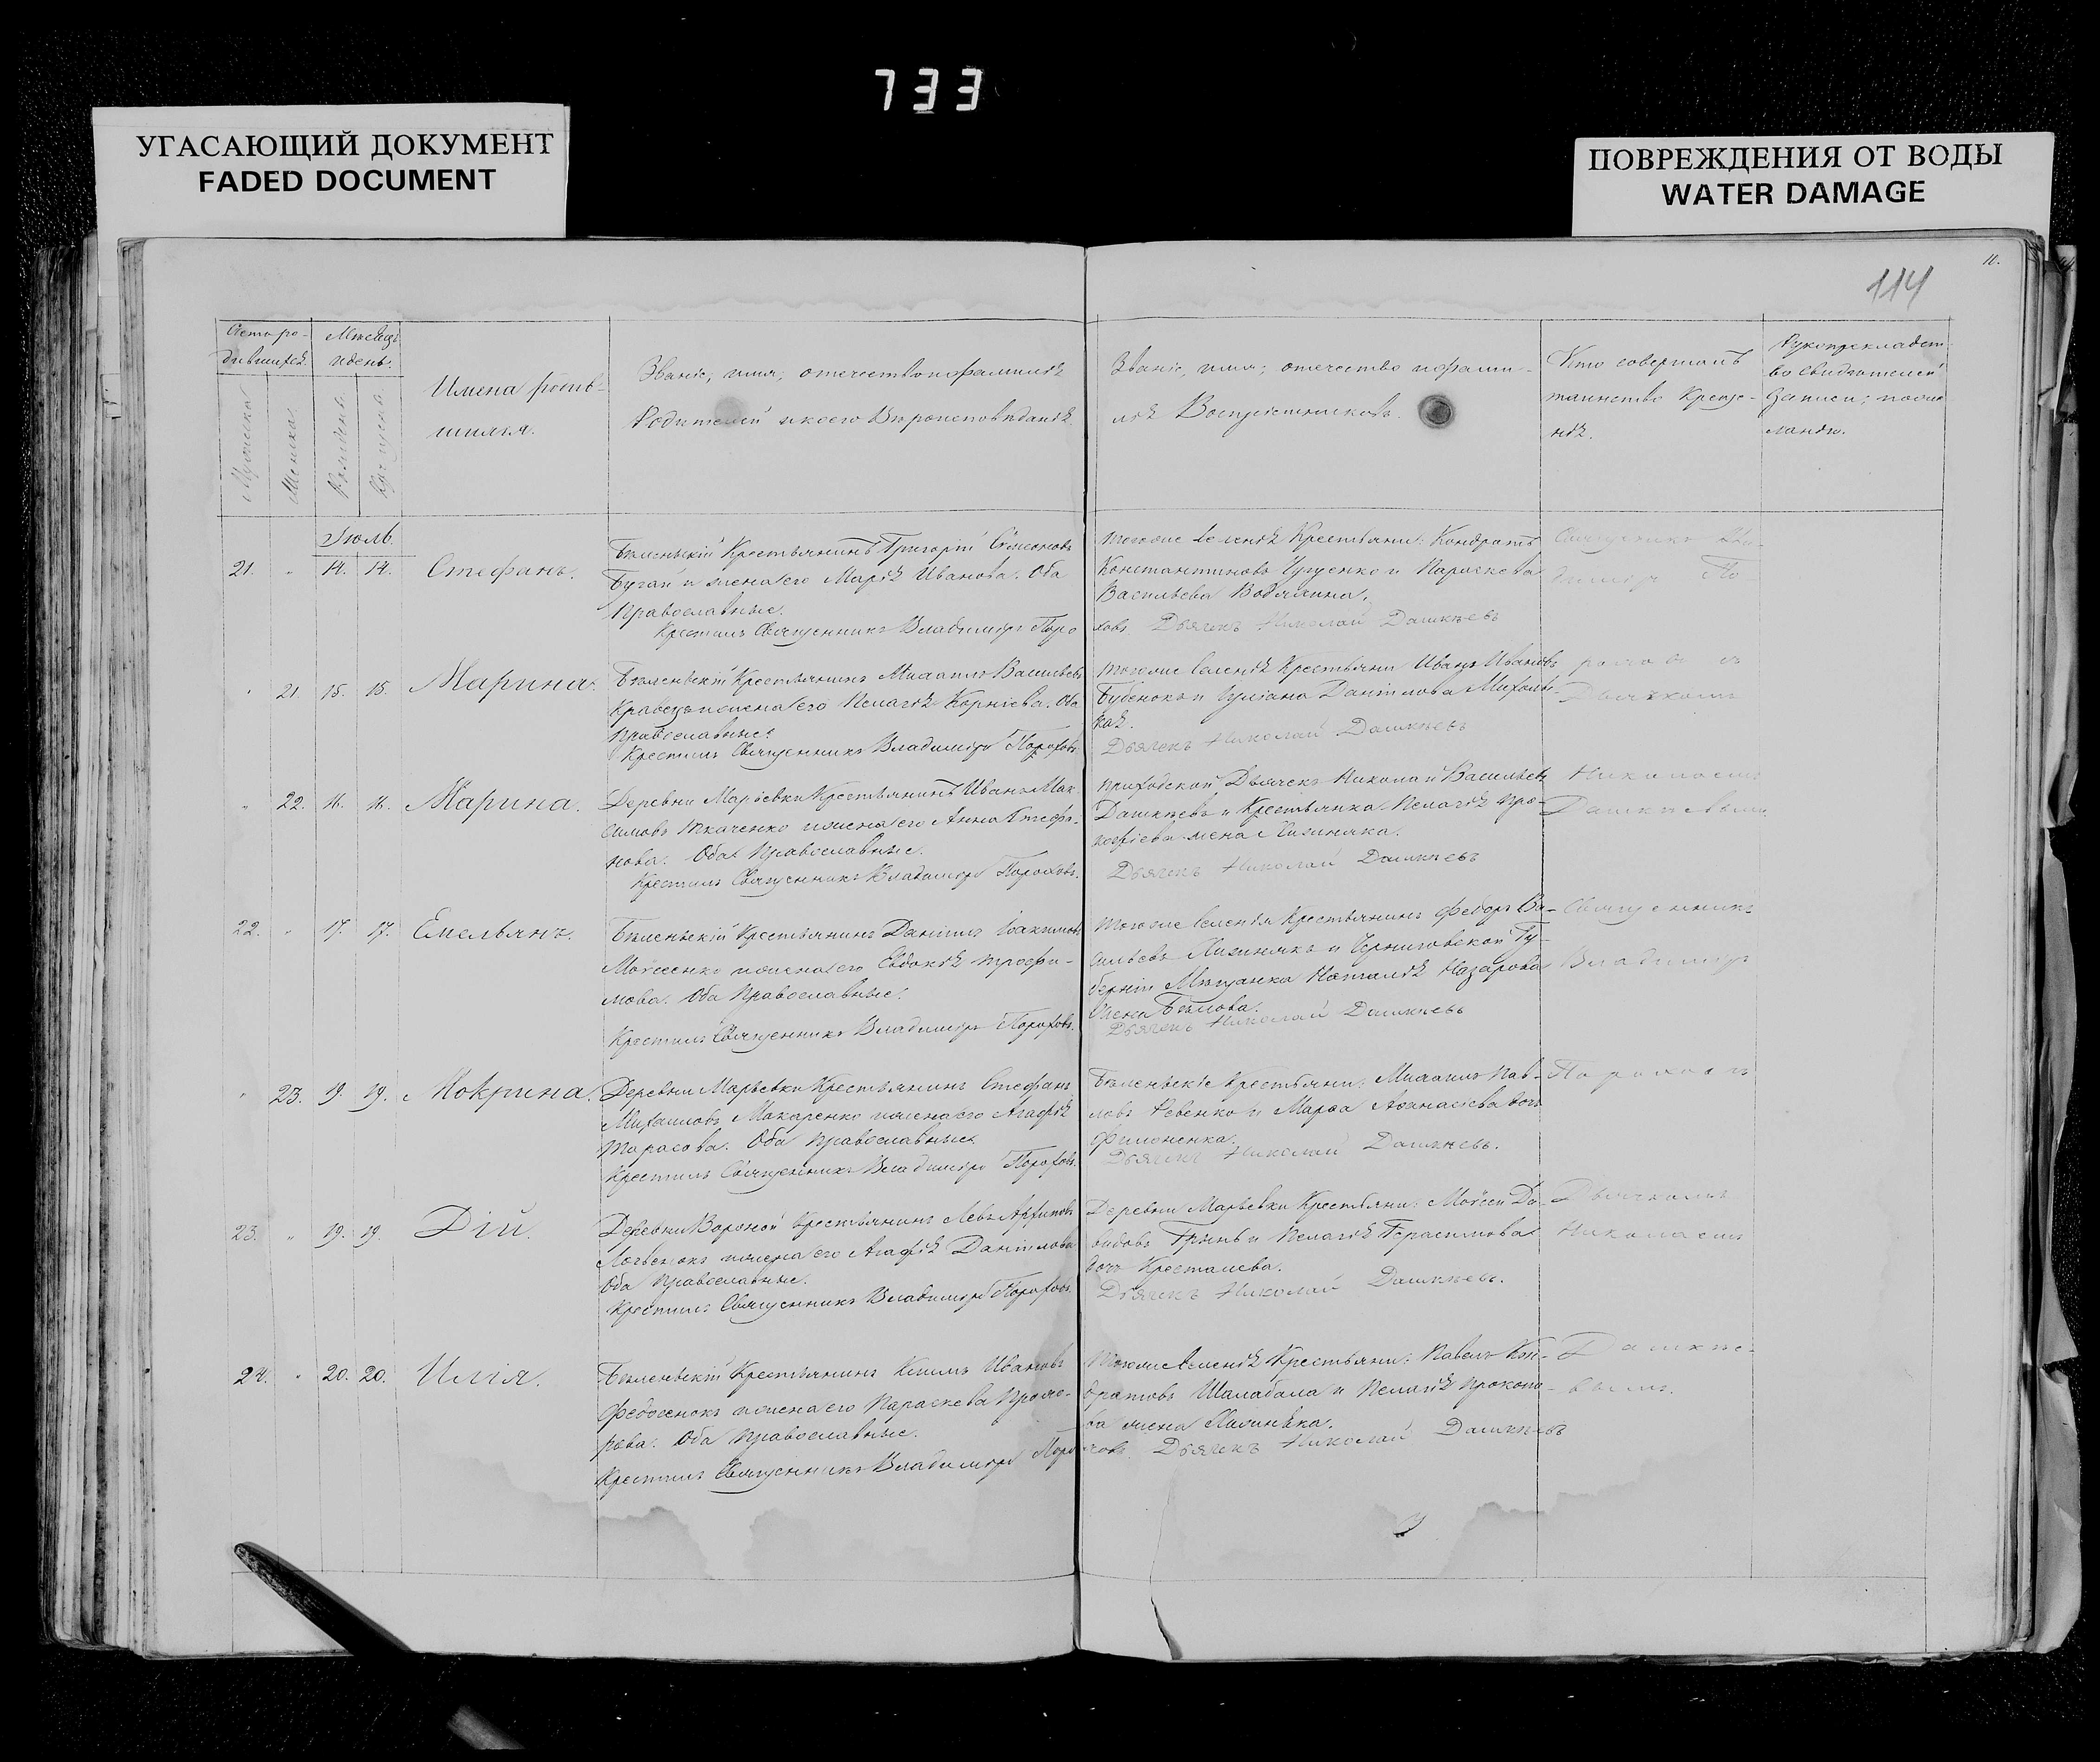 733
УГАСАЮЩИЙ ДОКУМЕНТ
FADED DOCUMENT
ПОВРЕЖДЕНИЯ ОТ ВОДЫ
WATER DAMAGE
11.
114
Счетъ ро-
дившихся.
Мужеска
Женска
Мѣсяцъ
и день.
Рожденія.
Крещенія.
Имена родив-
шихся.
Званіе, имя, отчество и фамилія
Родителей и какого Вѣроисповѣданія.
Званіе, имя, отчество и фами-
лія Воспріемниковъ.
Кто совершалъ
таинство Креще-
нія.
Рукоприкладст-
во свидѣтелей
записи, по же-
ланію.
Іюль
21. " 14. 14. Стефанъ.
Бѣленькій Крестьянинъ Григорій Симеоновъ
Бугай и жена его Марія Иванова. Оба
Православные.
Крестилъ Священникъ Владиміръ Поро
Тогоже селенія Крестьяне: Кондратъ
Константиновъ и Параскева
Васильева
ховъ. Дьячекъ Николай Дашкѣевъ
Священникъ Вла-
диміръ По
" 21. 15. 15. Марина.
Бѣленькій Крестьянинъ Михаилъ Васильевъ
Кравецъ и жена его Пелагія Корніева. Оба
Православные.
Крестилъ Священникъ Владиміръ Пороховъ.
Тогоже селенія Крестьяне Иванъ Ивановъ
Бубенокъ и Іуліана Даніилова
Дьячекъ Николай Дашкѣевъ
роховъ съ
Дьячкомъ
" 22. 16. 16. Марина.
Деревни Марьевки Крестьянинъ Иванъ Мак-
симовъ Ткаченко и жена его Анна Стефа-
нова. Оба Православные.
Крестилъ Священникъ Владиміръ Пороховъ.
Приходской Дьячекъ Николай Васильевъ
Дашкѣевъ и Крестьянка Пелагія Про-
кофіева жена Лизиняка.
Дьячекъ Николай Дашкѣевъ
Николаемъ
Дашкѣевымъ.
22. " 17. 17. Емельянъ.
Бѣленькій Крестьянинъ Даніилъ Іоакимовъ
Мойсеенко и жена его Евдокія Трофи-
мова. Оба Православные.
Крестилъ Священникъ Владиміръ Пороховъ.
Тогоже селенія Крестьянинъ Федоръ Ва-
сильевъ Лизинякъ и Черниговской Гу-
берніи Мѣщанка Наталія Назарова
жена Бѣлова.
Дьячекъ Николай Дашкѣевъ
Священникъ
Владиміръ
" 23. 19. 19. Мокрина.
Деревни Марьевки Крестьянинъ Стефанъ
Михаиловъ Макаренко и жена его Агафія
Тарасова. Оба Православные.
Крестилъ Священникъ Владиміръ Пороховъ.
Бѣленькіе Крестьяне: Михаилъ Пав-
ловъ Ревенко и Марѳа Аѳанасіева дочь
Филоненка.
Дьячекъ Николай Дашкѣевъ.
Пороховъ съ
23. " 19. 19. Дій.
Деревни Вороной Крестьянинъ Левъ Архиповъ
и жена его Агафія Даніилова
Оба Православные.
Крестилъ Священникъ Владиміръ Пороховъ.
Деревни Марьевки Крестьяне: Мойсей Да-
видовъ Гринь и Пелагія Герасимова
дочь
Дьячекъ Николай Дашкѣевъ.
Дьячкомъ
Николаемъ
24. " 20. 20. Илія.
Бѣленькій Крестьянинъ Климъ Ивановъ
Федосенокъ и жена его Параскева Прохо-
рова. Оба Православные.
Крестилъ Священникъ Владиміръ Поро
Тогоже селенія Крестьяне: Павелъ Кон-
дратовъ Шалабала и Пелагія Прокопо-
ва жена Лизиняка.
ховъ. Дьячекъ Николай Дашкѣевъ
Дашкѣе-
вымъ.